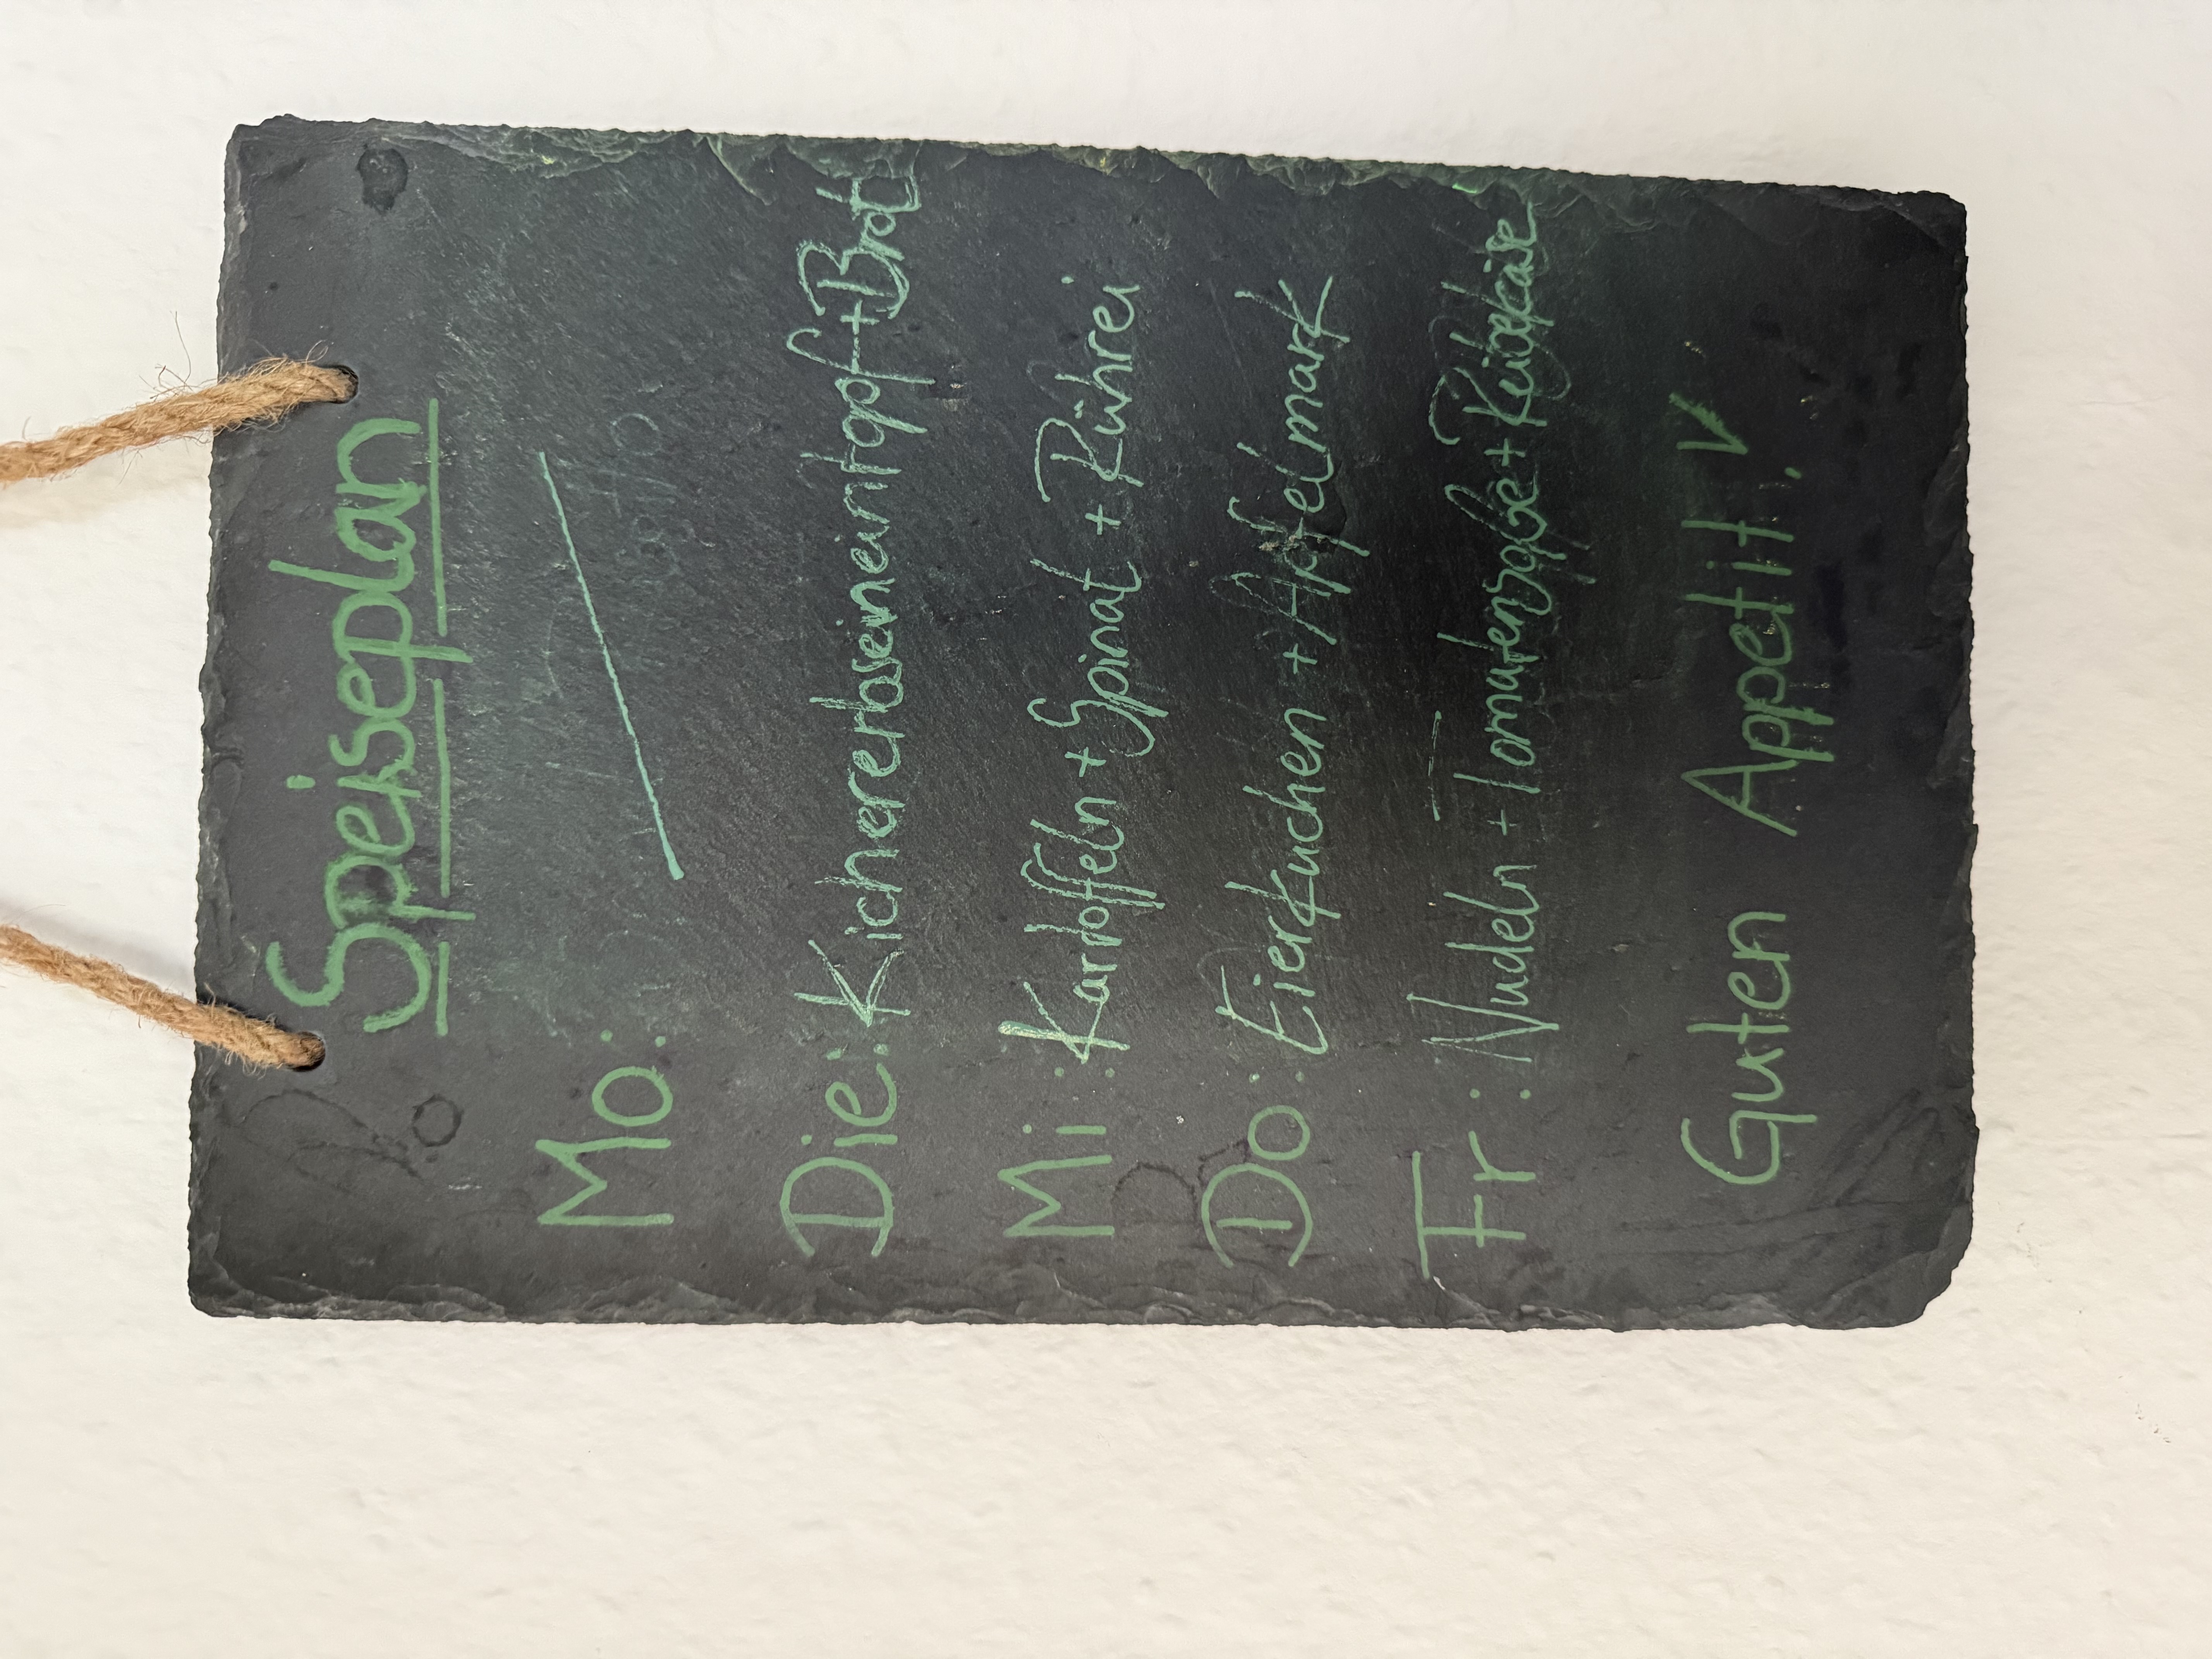 Speiseplan
Mo:
Die: Kichererbseneintopf + Brot
Mi: Kartoffeln + Spinat + Rührei
Do: Eierkuchen + Apfelmark
Fr: Nudeln + Tomatensoße + Reibekäse
Guten Appetit!